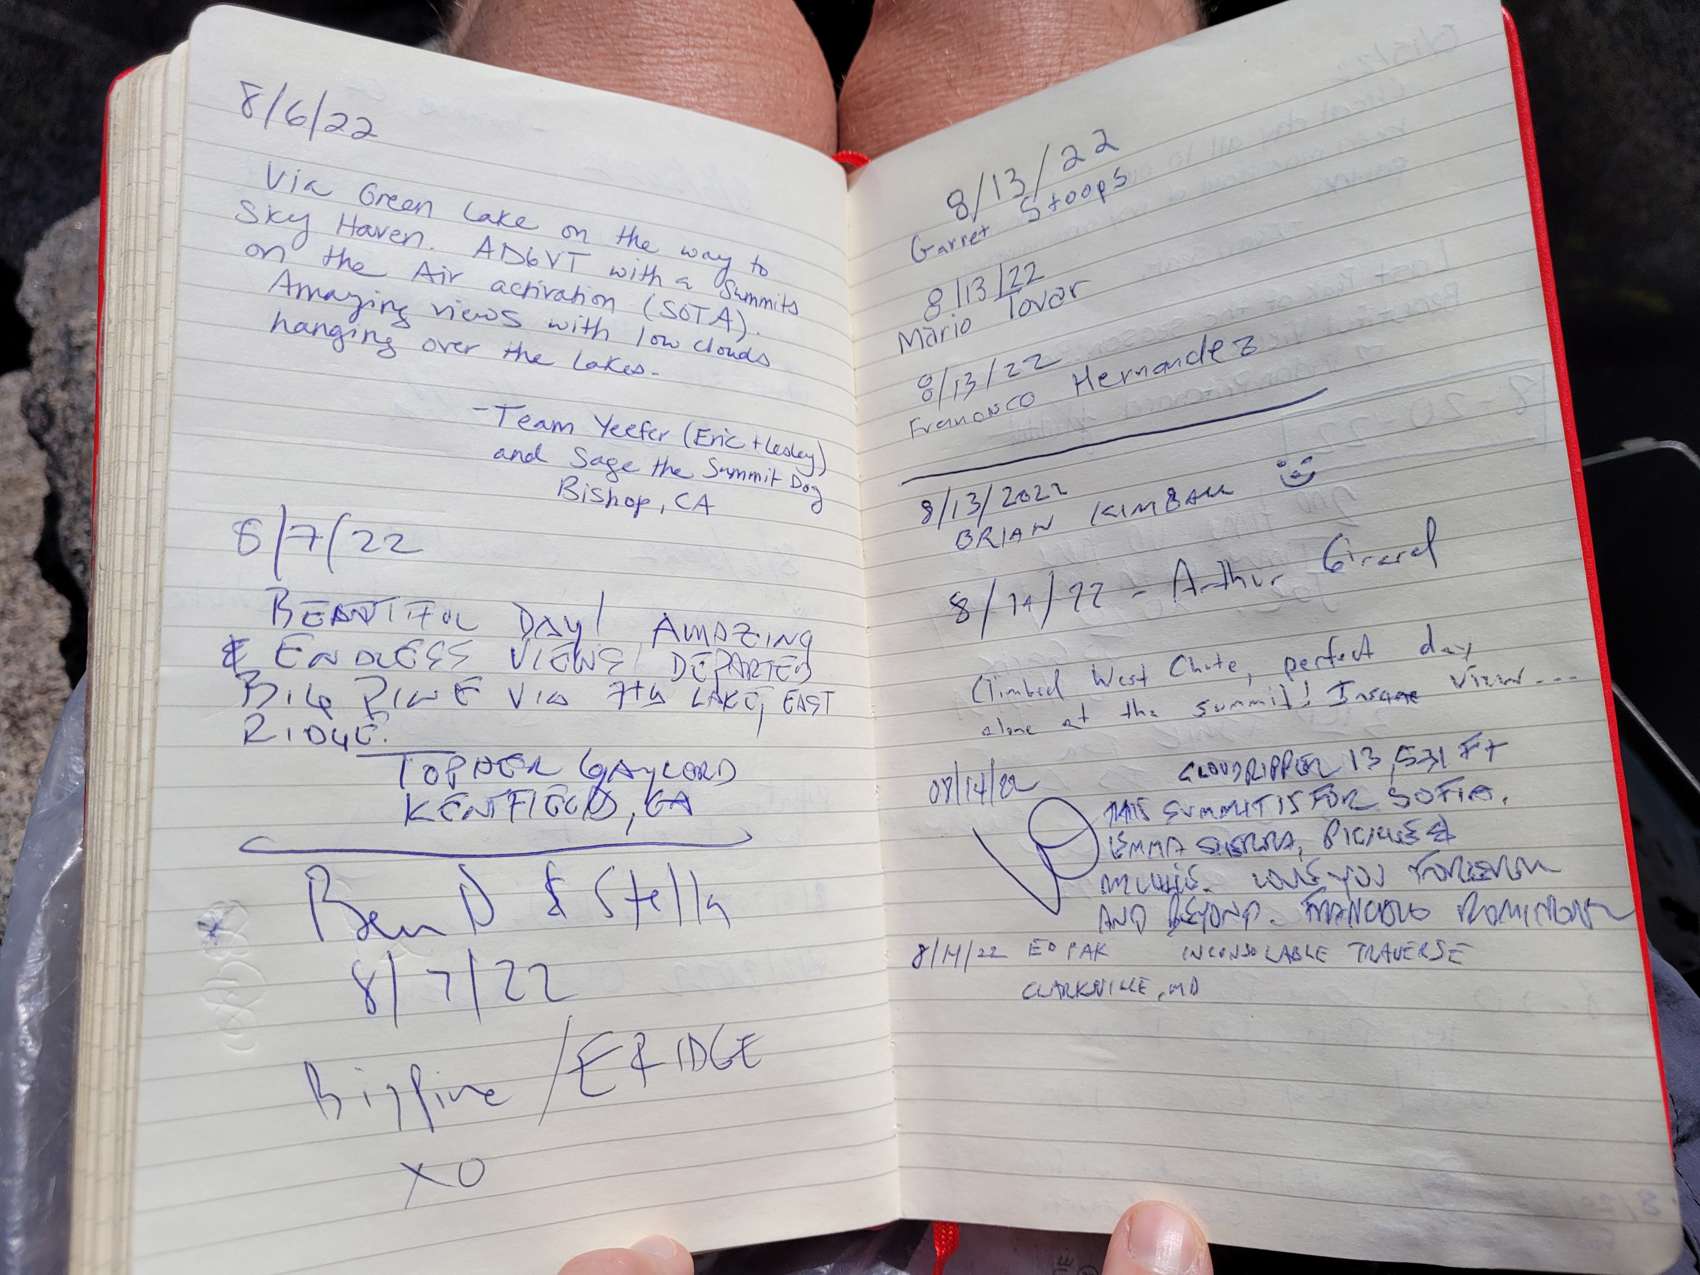 8/6/22
Via Green Lake on the way to
Sky Haven. AD6VT with a Summits
on the Air activation (SOTA).
Amazing views with low clouds
hanging over the lakes.
- Team Yeefer (Eric + Lesley)
and Sage the Summit Dog
Bishop, CA
8/7/22
BEAUTIFUL DAY! AMAZING
& ENDLESS VIEWS! DEPARTED
BIG PINE VIA 7th LAKE, EAST
RIDGE.
TOPHER GAYLORD
KENTFIELD, CA
Ben D & Stella
8/7/22
Bigpine / E RIDGE
XO
8/13/22
Garret Stoops
8/13/22
Mario Tovar
8/13/22
Francisco Hernandez
8/13/2022
BRIAN KIMBALL
8/14/22 - Arthur Girard
Climbed West Chute, perfect day
alone at the summit! Insane view...
08/14/22 CLOUDRIPPER 13,531 FT
THIS SUMMIT IS FOR SOFIA,
EMMA SIERRA, &
LOVE YOU FOREVER
AND BEYOND.
8/14/22 ED PAK INCONSOLABLE TRAVERSE
CLARKVILLE, MD